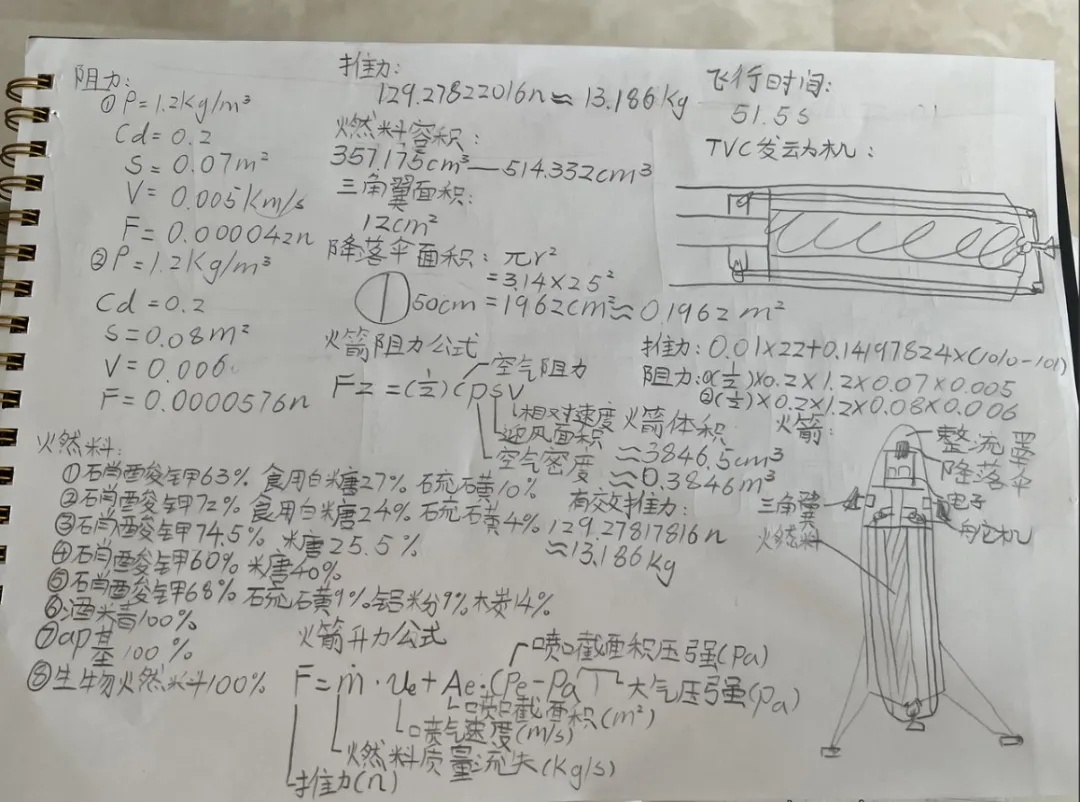 阻力:
①P=1.2Kg/m³
Cd=0.2
S=0.07m²
V=0.005Km/s
F=0.000042n
②P=1.2Kg/m³
Cd=0.2
S=0.08m²
V=0.006
F=0.0000576n
推力:
129.27822016n≈13.186Kg
燃料容积:
357.175cm³—514.332cm³
三角翼面积:
12cm²
降落伞面积: πr²
=3.14×25²
50cm =1962cm²≈0.1962m²
火箭阻力公式
空气阻力
Fz=(½)(ρsv
相对速度
迎风面积
空气密度
飞行时间:
51.5s
TVC发动机:
推力:0.01×22+0.14197824×(1010-101)
阻力:①(½)×0.2×1.2×0.07×0.005
②(½)×0.2×1.2×0.08×0.006
火箭体积
≈3846.5cm³
≈0.3846m³
有效推力:
129.27817816n
≈13.186Kg
火箭:
整流罩
降落伞
三角翼
电子
舵机
燃料
燃料:
①硝酸钾63% 食用白糖27% 硫磺10%
②硝酸钾72% 食用白糖24% 硫磺4%
③硝酸钾74.5% 糖25.5%
④硝酸钾60% 糖40%
⑤硝酸钾68% 硫磺9% 铝粉9% 木炭14%
⑥酒精100%
⑦ap基100%
⑧生物燃料100%
火箭升力公式
喷口截面积压强(Pa)
F=ṁ·Ue+Ae·(Pe-Pa) 大气压强(pa)
喷口截面积(m²)
喷气速度(m/s)
燃料质量流失(Kg/s)
推力(n)